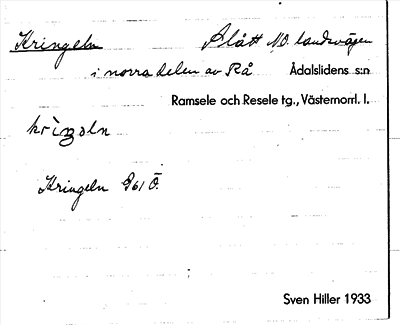 Kringeln Slått N.O. landsvägen
i norra delen av Rå Ådalslidens s:n
Ramsele och Resele tg., Västernorrl. l.
krìŋəln
Kringeln Eg 61 Ö.
Sven Hiller 1933